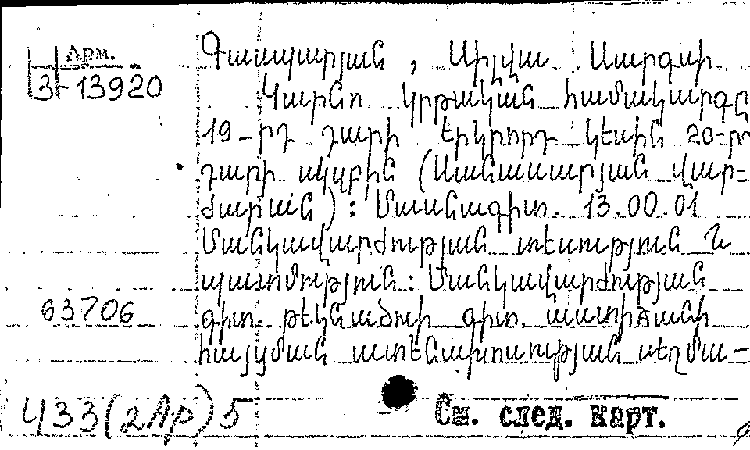 Арм.
Յ-13920
Գասպարյան, Սիլվա Սարգսի
Կարնո կրթական համակարգը
19-րդ դարի երկրորդ կեսին 20-րդ
դարի սկզբին (Սանասարյան վար-
ժարան): Մասնագիտ. 13.00.01
Մանկավարժության տեսություն և
պատմություն: Մանկավարժության
63706
գիտ. թեկնածուի գիտ. աստիճանի
հայցման ատենախոսության սեղմա-
Ч33(2Ар)5
См. след. карт.